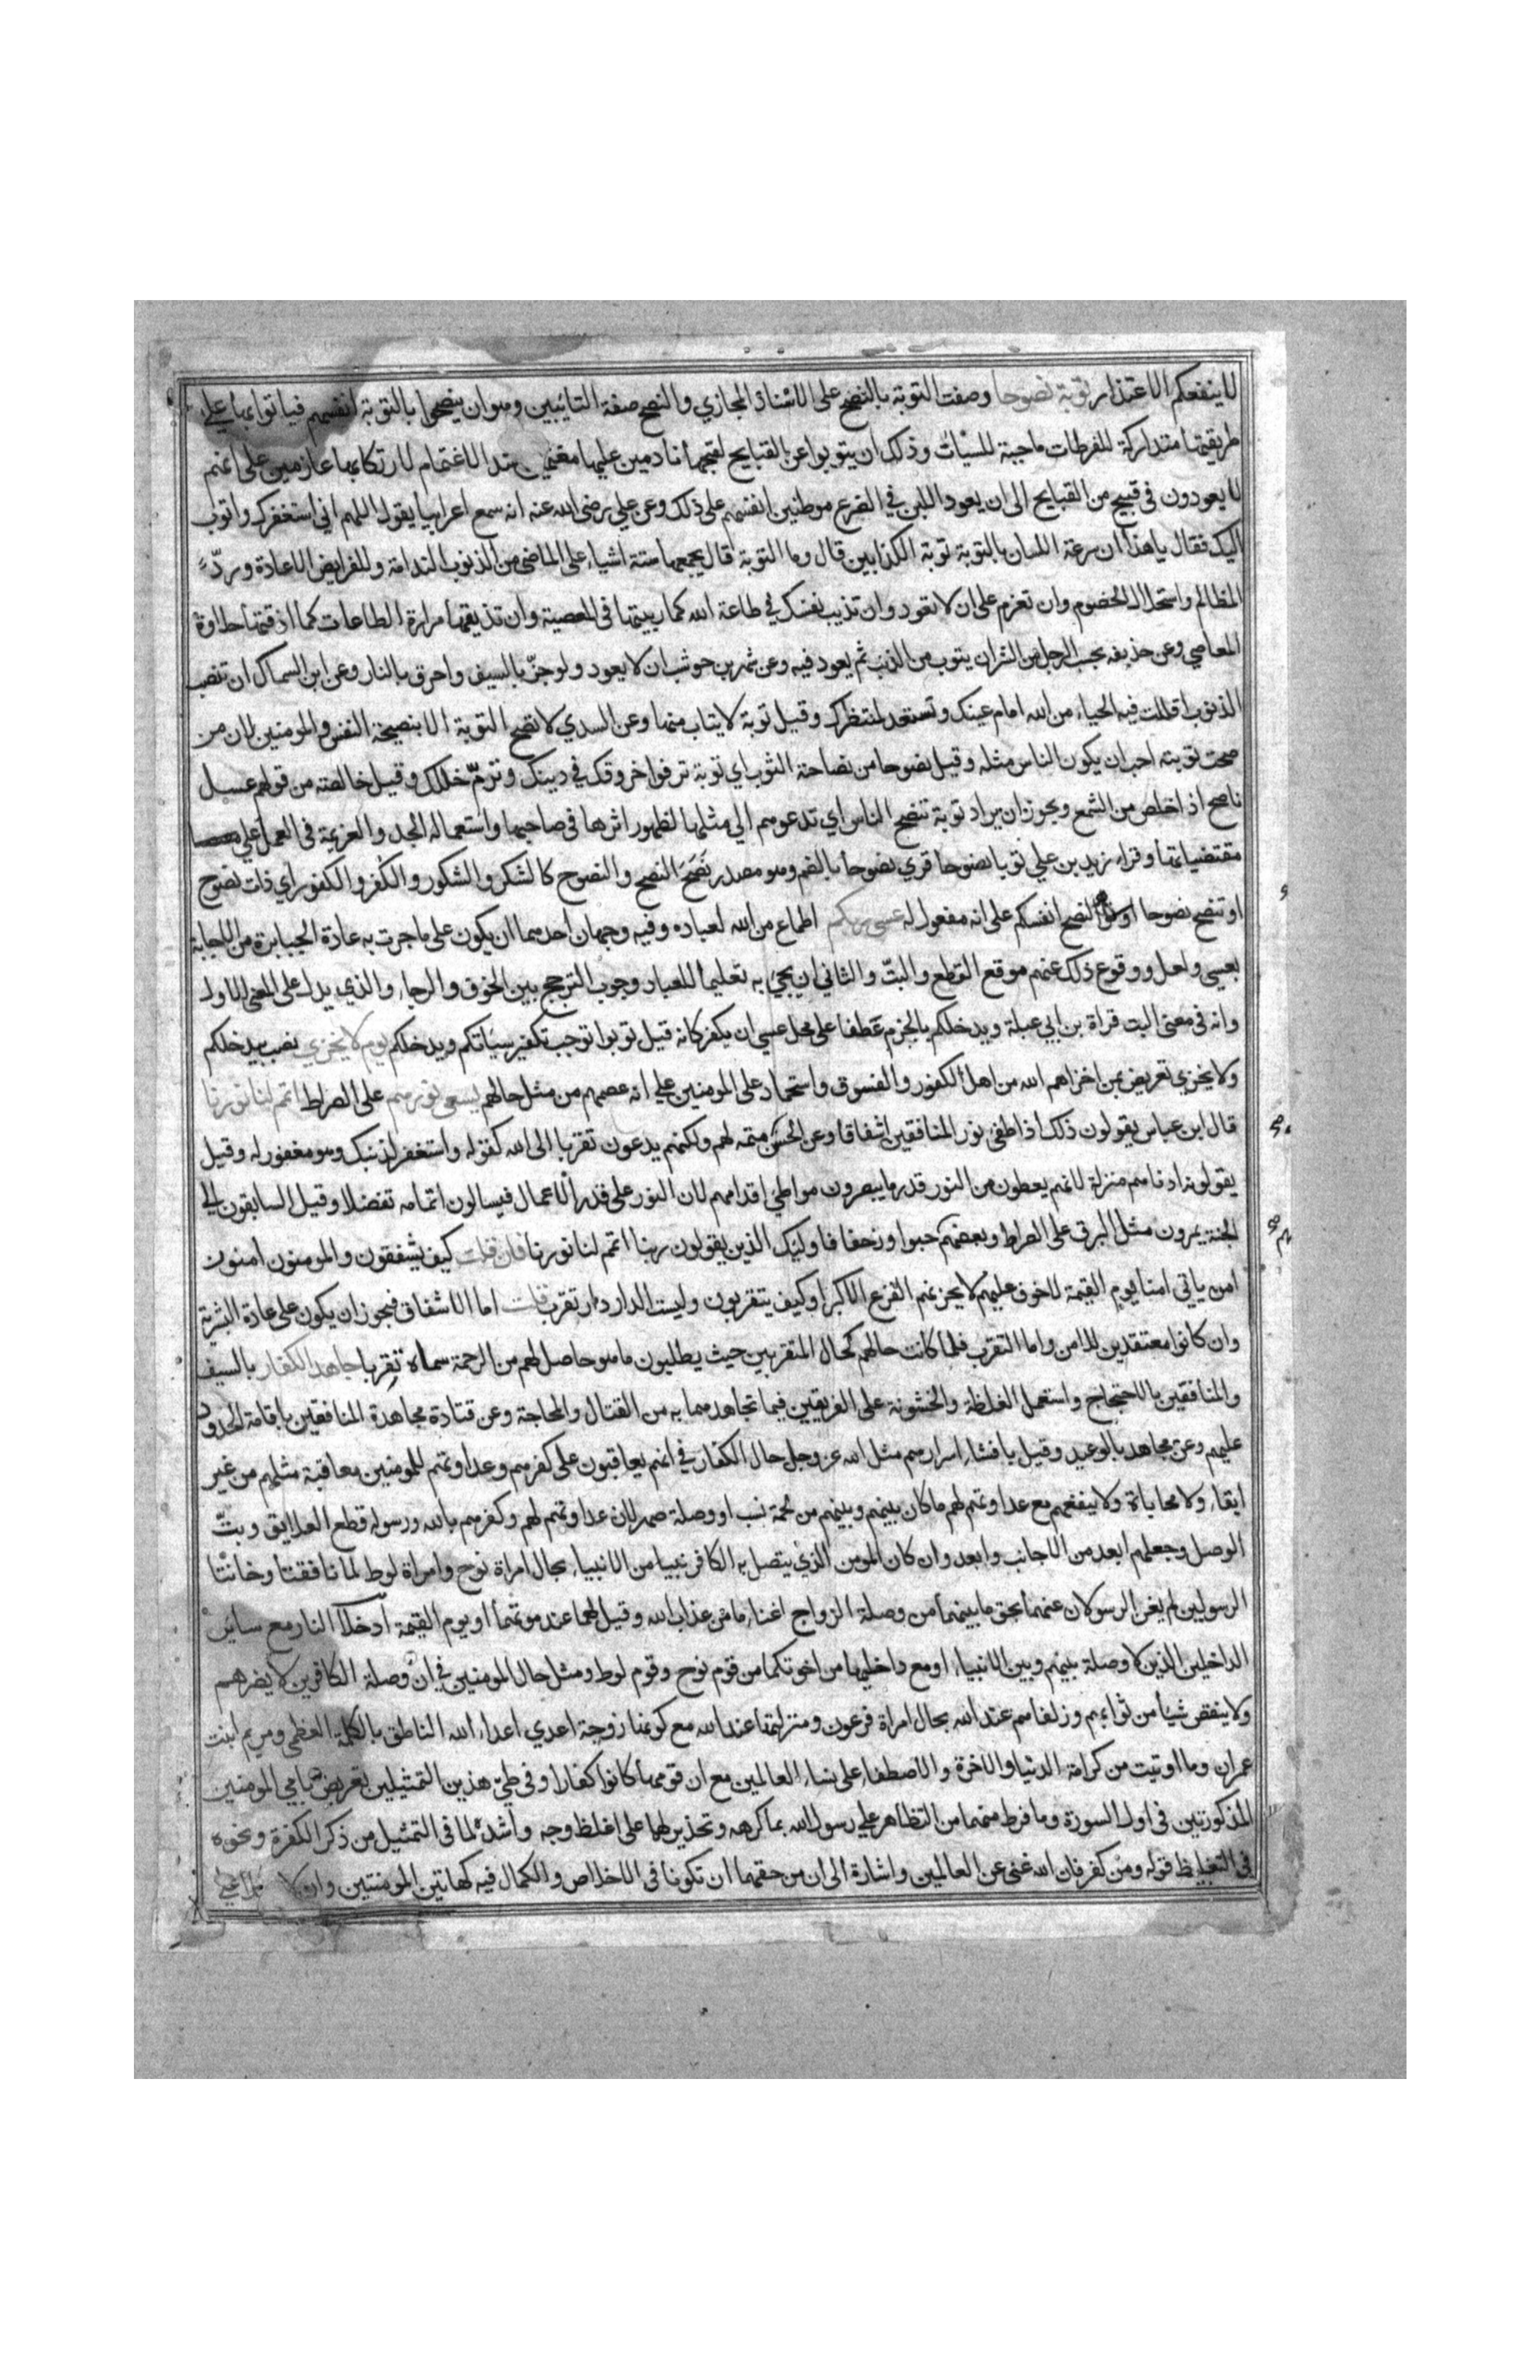 لا ينفعكم الاعتذار توبة نصوحا وصفت التوبة بالنصح على الاسناد المجازي والنصح صفة التايبين وهو ان ينصحوا بالتوبة انفسهم فياتوا بها على
طريقتها متداركة للفرطات ماحية للسيات وذلك ان يتوبوا عن القبايح لقبحها نادمين عليها مغتمين اشد الاغتمام لارتكابها عازمين على انهم
لا يعودون في قبيح من القبايح الى ان يعود اللبن في الضرع موطنين انفسهم على ذلك وعن علي رضى الله عنه انه سمع اعرابيا يقول اللهم اني استغفرك واتوب
اليك فقال يا هذا ان سرعة اللسان بالتوبة توبة الكذابين قال وما التوبة قال يجمعها ستة اشياء على الماضى من الذنوب الندامة وللفرايض الاعادة وردّ
المظالم واستحلال الخصوم وان تعزم على ان لا تعود وان تذيب نفسك في طاعة الله كما ربيتها فى المعصية وان تذيقها مرارة الطاعات كما اذقتها حلاوة
المعاصي وعن حذيفه بحسب الرجل من الشر ان يتوب من الذنب ثم يعود فيه وعن شهر بن حوشب ان لا يعود ولو جزّ بالسيف واحرق بالنار وعن ابن السماك ان تنصب
الذنوب اقللت فيه الحياء من الله امام عينك وتستعد لمنتظرك وقيل توبة لا يتاب منها وعن السدي لا تصح التوبة الا بنصيحة النفس والمومنين لان من
صحت توبته احب ان يكون الناس مثله وقيل نصوحا من نصاحة الثوب اي توبة ترفوا خروقك في دينك وترمّ خللك وقيل خالصة من قولهم عسل
ناصح اذا خلص من الشمع ويجوز ان يراد توبة تنصح الناس اي تدعوهم الي مثلها لظهور اثرها فى صاحبها واستعماله الجد والعزيمة فى العمل على
مقتضياتها وقراء زيد بن علي توبا نصوحا قري نصوحا بالضم وهو مصدر نَصَحَ النصح والنصوح كالشكر والشكور والكفر والكفور اي ذات نصوح
او تنصح نصوحا او لنصح انفسكم على انه مفعول له عسى ربكم اطماع من الله لعباده وفيه وجهان احدهما ان يكون على ما جرت به عادة الجبابرة من الاجابة
بعسى ولعل ووقوع ذلك عنهم موقع القطع والبتّ والثاني ان يجئ به تعليما للعباد وجوب الترجح بين الخوف والرجاء والذي يدل على المعنى الاول
وانه فى معنى البت قراة بن ابي عبلة ويدخلكم بالجزم عَطفا على محل عسى ان يكفر كانه قيل توبوا توجب تكفير سيّاتكم ويدخلكم يوم لا يخزي نصب بيدخلكم
ولا يخزي تعريض بمن اخزاهم الله من اهل الكفور والفسوق واستحماد على المومنين علي انه عصمهم من مثل حالهم يسعى نورهم على الصراط اتمم لنا نورنا
قال ابن عباس يقولون ذلك اذا طفئ نور المنافقين اشفاقا وعن الحسن متمه لهم ولكنهم يدعون تقربا الى الله كقوله واستغفر لذنبك وهو مغفور له وقيل
يقوله ادناهم منزلة لانهم يعطون من النور قدر ما يبصرون مواطئ اقدامهم لان النور على قدر الاعمال فيسالون اتمامه تفضلا وقيل السابقون الى
الجنة يمرون مثل البرق على الصراط وبعضهم حبوا وزحفا فاوليك الذين يقولون ربنا اتمم لنا نورنا فان قلت كيف يشفقون والمومنون امنون
امن ياتي امنا يوم القيمة لا خوف عليهم لا يحزنهم الفزع الاكبر او كيف يتقربون وليست الدار دار تقرب قلت اما الاشفاق فيجوز ان يكون على عادة البشرية
وان كانوا معتقدين للامن واما التقرب فلما كانت حالهم كحال المتقربين حيث يطلبون ما هو حاصل لهم من الرحمة سماه تقربا جاهد الكفار بالسيف
والمنافقين بالاحتجاج واستعمل الغلظة والخشونة على الفريقين فيما تجاهدهما به من القتال والمحاجة وعن قتادة مجاهدة المنافقين باقامة الحدود
عليهم وعن مجاهد بالوعيد وقيل بافشاء اسرارهم مثل الله عز وجل حال الكفار في انهم يعاقبون على كفرهم وعداوتهم للمومنين معاقبة مثلهم من غير
ابقاء ولا محاباة ولا ينفعهم مع عداوتهم لهم ما كان بينهم وبينهم من لحمة نسب او وصلة صهر لان عداوتهم لهم وكفرهم بالله ورسوله قطع العلايق وبتّ
الوصل وجعلهم ابعد من الاجانب وابعد وان كان المومن الذي يتصل به الكافر نبيا من الانبياء بحال امراة نوح وامراة لوط لما نافقتا وخانتا
الرسولين لم يغن الرسولان عنهما بحق ما بينهما من وصلة الزواج اغناء ما من عذاب الله وقيل لهما عند موتهما او يوم القيمة ادخلا النار مع ساير
الداخلين الذين لا وصلة بينهم وبين الانبياء او مع داخليها من اخوتكما من قوم نوح وقوم لوط ومثل حال المومنين في ان وصلة الكافرين لا يضرهم
ولا ينقص شيا من ثوابهم وزلفاهم عند الله بحال امراة فرعون ومنزلتها عند الله مع كونها زوجة اعدي اعداء الله الناطق بالكلمة العظمى ومريم ابنت
عمران وما اوتيت من كرامة الدنيا والاخرة والاصطفاء على نساء العالمين مع ان قومها كانوا كفارا وفي طيّ هذين التمثيلين تعريض بامي المومنين
المذكورتين فى اول السورة وما فرط منهما من التظاهر علي رسول الله بما كرهه وتحذير لهما على اغلظ وجه واشده لما فى التمثيل من ذكر الكفرة ونحوه
فى التغليظ قوله ومن كفر فان الله غنى عن العالمين واشارة الى ان من حقهما ان تكونا فى الاخلاص والكمال فيه كهاتين المومنتين وان لا